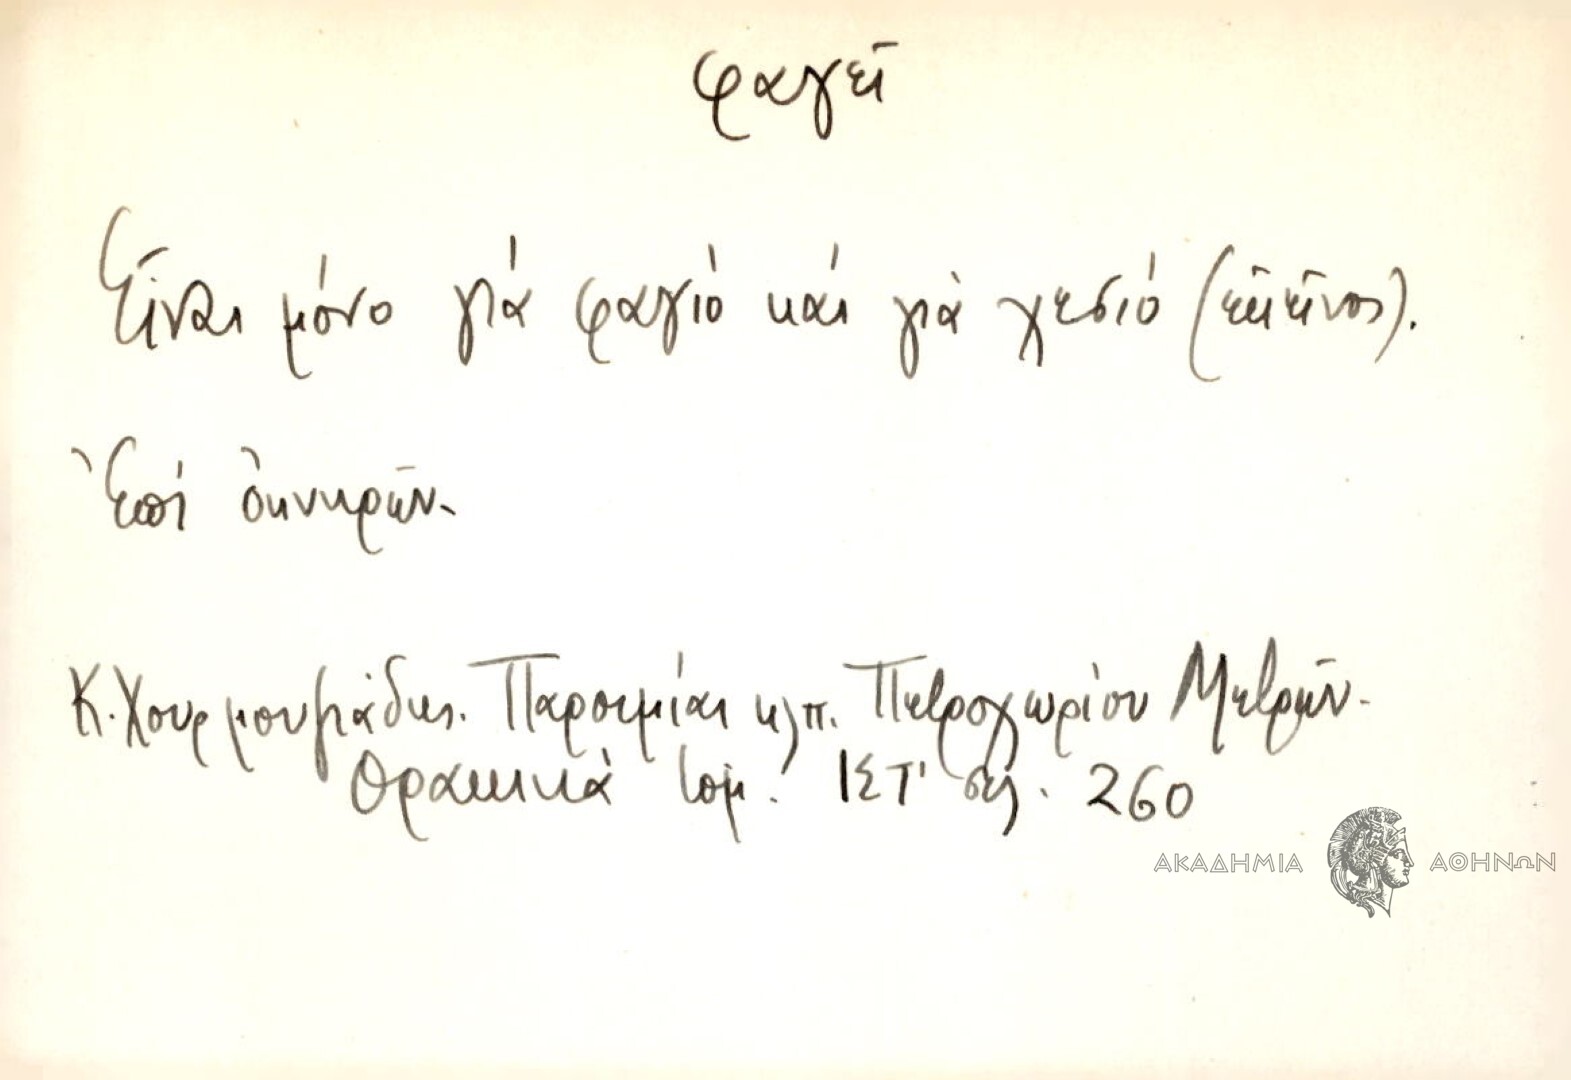 φαγεῖ
Εἶναι μόνο γιά φαγιό καί γιὰ χεσιό (ἐκεῖνος).
Ἐπί ὀκνηρῶν.
Κ. Χουρμουζιάδης. Παροιμίαι κλπ. Πετροχωρίου Μετρῶν.
Θρακικὰ τομ. ΙΣΤ' σελ. 260
ΑΚΑΔΗΜΙΑ ΑΘΗΝΩΝ